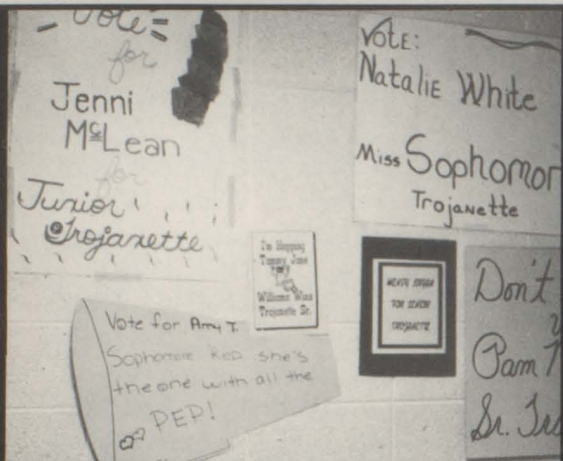 Vote
for
Jenni
McLean
for
Junior
Trojanette
VOTE:
Natalie White
Miss Sophomor
Trojanette
I'm Hopping
Tammy Jane
Williams Wins
Trojanette Sr.
FOR SENIOR
TROJANETTE
Don't
Pam
Sr. Tro
Vote for Amy T.
Sophomore Rep she's
the one with all the
PEP!